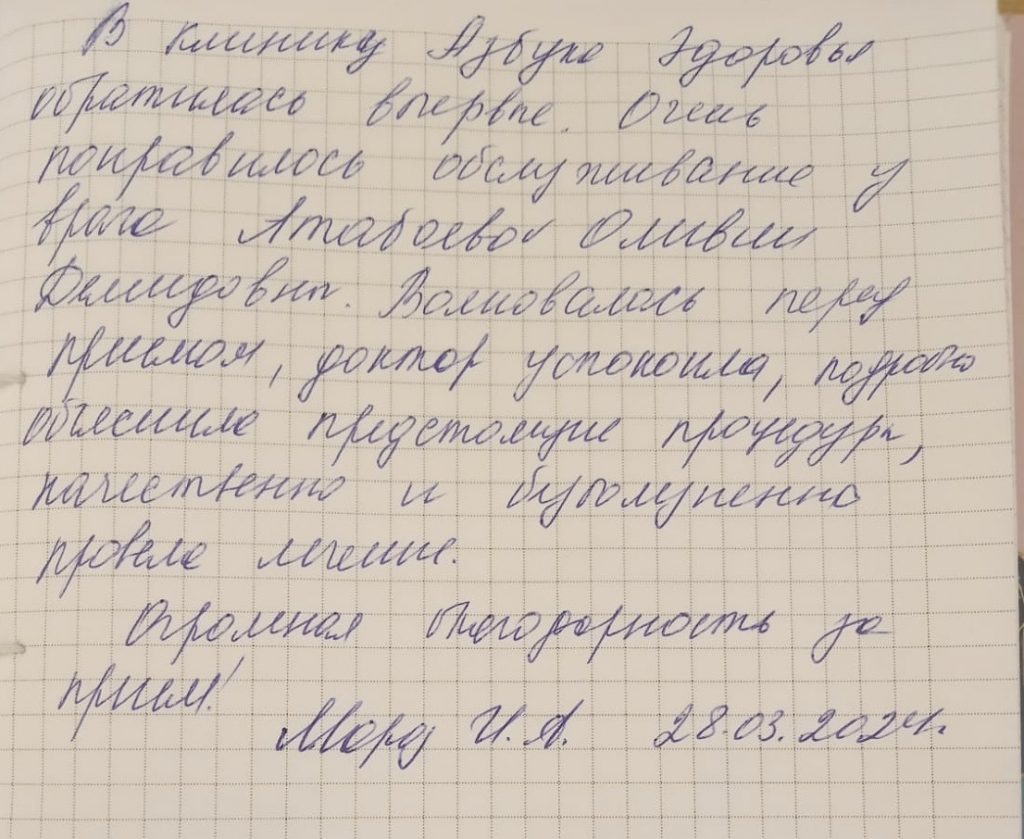 В клинику Азбука Здоровья
обратилась впервые. Очень
понравилось обслуживание у
врача Атабаевой Оливии
Демидовны. Волновалась перед
приемом, доктор успокоила, подробно
объяснила предстоящие процедуры,
качественно и безболезненно
провела лечение.
Огромная благодарность за
прием!
Мороз И. А. 28.03.2024г.